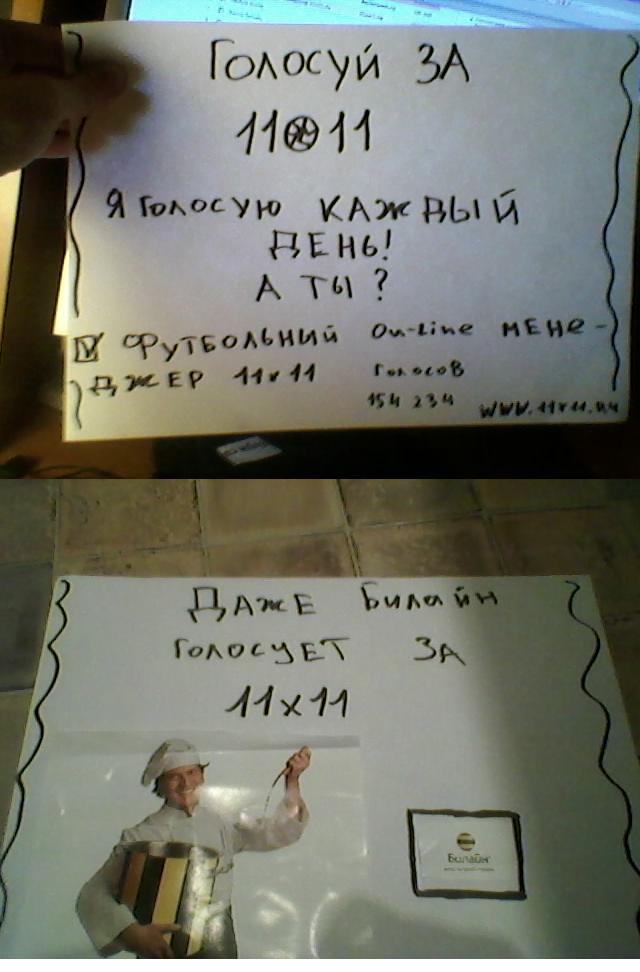 Голосуй ЗА
11⚽11
Я голосую каждый
день!
А ты?
☑ Футбольний On-line мене-
джер 11x11 голосов
154 234 www.11x11.ru
Даже Билайн
голосует ЗА
11x11
Билайн